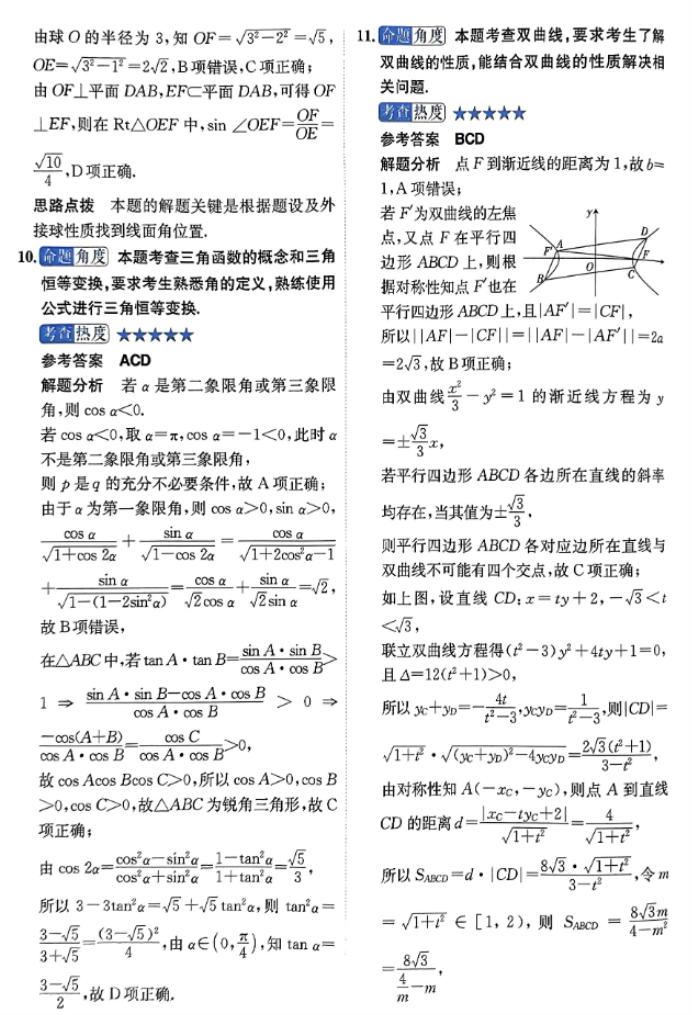 由球 O 的半径为 3,知 OF=√(3²−2²)=√5,
OE=√(3²−1²)=2√2,B 项错误,C 项正确;
由 OF⊥平面 DAB,EF⊂平面 DAB,可得 OF
⊥EF,则在 Rt△OEF 中,sin ∠OEF=OF/OE=
√10/4,D 项正确.
思路点拨 本题的解题关键是根据题设及外
接球性质找到线面角位置.
10. 命题角度 本题考查三角函数的概念和三角
恒等变换,要求考生熟悉角的定义,熟练使用
公式进行三角恒等变换.
考查热度 ★★★★★
参考答案 ACD
解题分析 若 α 是第二象限角或第三象限
角,则 cos α<0.
若 cos α<0,取 α=π,cos α=−1<0,此时 α
不是第二象限角或第三象限角,
则 p 是 q 的充分不必要条件,故 A 项正确;
由于 α 为第一象限角,则 cos α>0,sin α>0,
cos α/√(1+cos 2α)+sin α/√(1−cos 2α)=cos α/√(1+2cos²α−1)
+sin α/√(1−(1−2sin²α))=cos α/(√2cos α)+sin α/(√2sin α)=√2,
故 B 项错误,
在△ABC 中,若 tan A·tan B=(sin A·sin B)/(cos A·cos B)>
1 ⇒ (sin A·sin B−cos A·cos B)/(cos A·cos B) > 0 ⇒
−cos(A+B)/(cos A·cos B)=cos C/(cos A·cos B)>0,
故 cos Acos Bcos C>0,所以 cos A>0,cos B
>0,cos C>0,故△ABC 为锐角三角形,故 C
项正确;
由 cos 2α=(cos²α−sin²α)/(cos²α+sin²α)=(1−tan²α)/(1+tan²α)=√5/3,
所以 3−3tan²α=√5+√5tan²α,则 tan²α=
(3−√5)/(3+√5)=(3−√5)²/4,由 α∈(0,π/4),知 tan α=
(3−√5)/2,故 D 项正确.
11. 命题角度 本题考查双曲线,要求考生了解
双曲线的性质,能结合双曲线的性质解决相
关问题.
考查热度 ★★★★★
参考答案 BCD
解题分析 点 F 到渐近线的距离为 1,故 b=
1,A 项错误;
若 F′为双曲线的左焦
点,又点 F 在平行四
边形 ABCD 上,则根
据对称性知点 F′也在
y
D
A
F′
F
O
C
B
平行四边形 ABCD 上,且|AF′|=|CF|,
所以||AF|−|CF||=||AF|−|AF′||=2a
=2√3,故 B 项正确;
由双曲线 x²/3−y²=1 的渐近线方程为 y
=±√3/3x,
若平行四边形 ABCD 各边所在直线的斜率
均存在,当其值为±√3/3,
则平行四边形 ABCD 各对应边所在直线与
双曲线不可能有四个交点,故 C 项正确;
如上图,设直线 CD:x=ty+2,−√3<t
<√3,
联立双曲线方程得(t²−3)y²+4ty+1=0,
且 Δ=12(t²+1)>0,
所以 y_C+y_D=−4t/(t²−3),y_Cy_D=1/(t²−3),则|CD|=
√(1+t²)·√((y_C+y_D)²−4y_Cy_D)=2√3(t²+1)/(3−t²),
由对称性知 A(−x_C,−y_C),则点 A 到直线
CD 的距离 d=|x_C−ty_C+2|/√(1+t²)=4/√(1+t²),
所以 S_ABCD=d·|CD|=8√3·√(1+t²)/(3−t²),令 m
=√(1+t²)∈[1,2),则 S_ABCD=8√3m/(4−m²)
=8√3/(4/m−m),